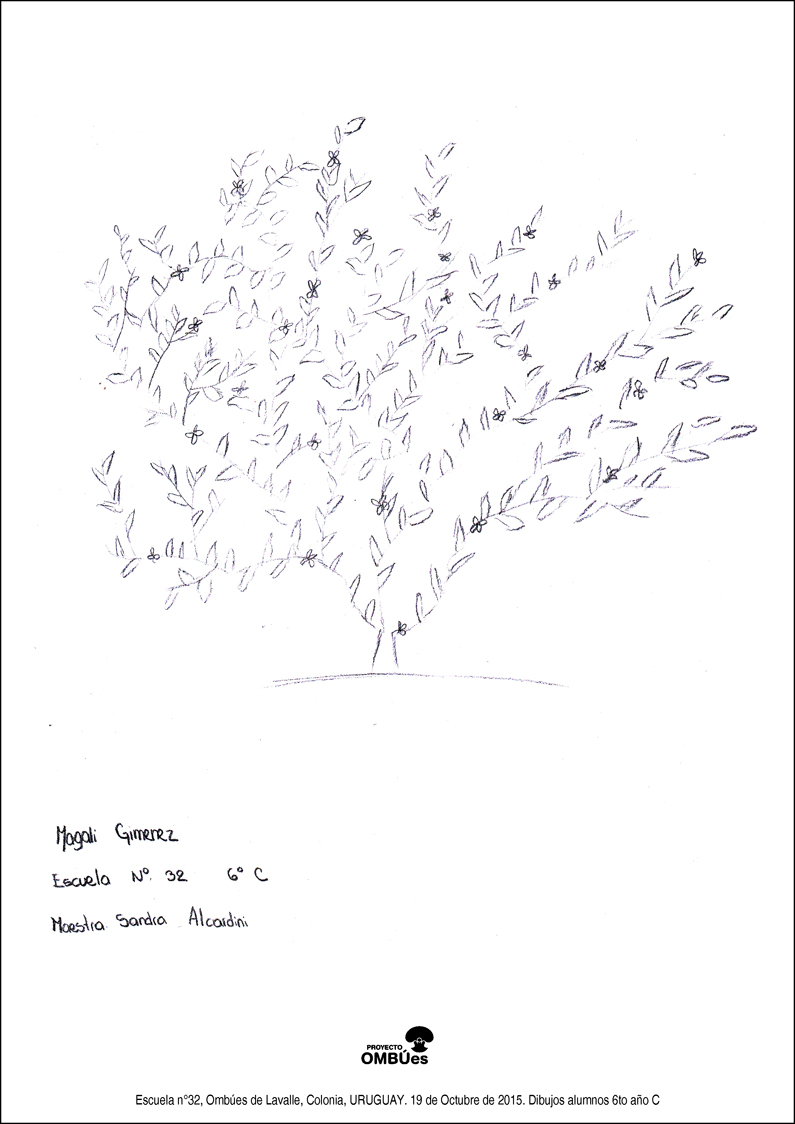 Magali Gimenez
Escuela Nº. 32 6º C
Maestra Sandra Alcardini
PROYECTO
OMBÚes
Escuela n°32, Ombúes de Lavalle, Colonia, URUGUAY. 19 de Octubre de 2015. Dibujos alumnos 6to año C